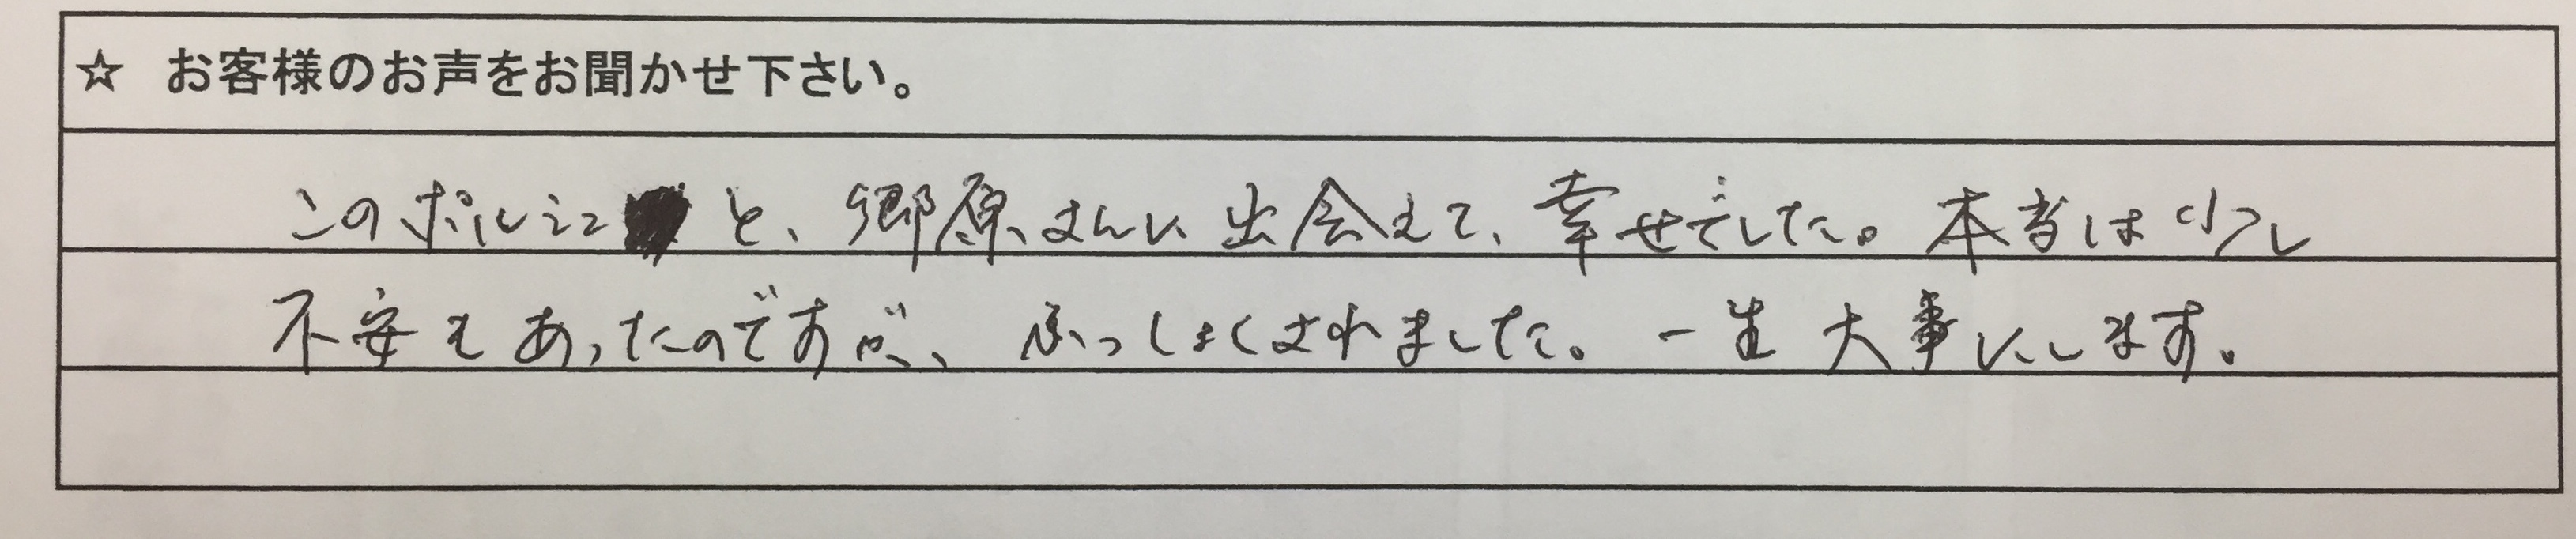 ☆ お客様のお声をお聞かせ下さい。
このポルシェと、郷原さんに出会えて、幸せでした。本当は少し
不安もあったのですが、ふっしょくされました。一生大事にします。